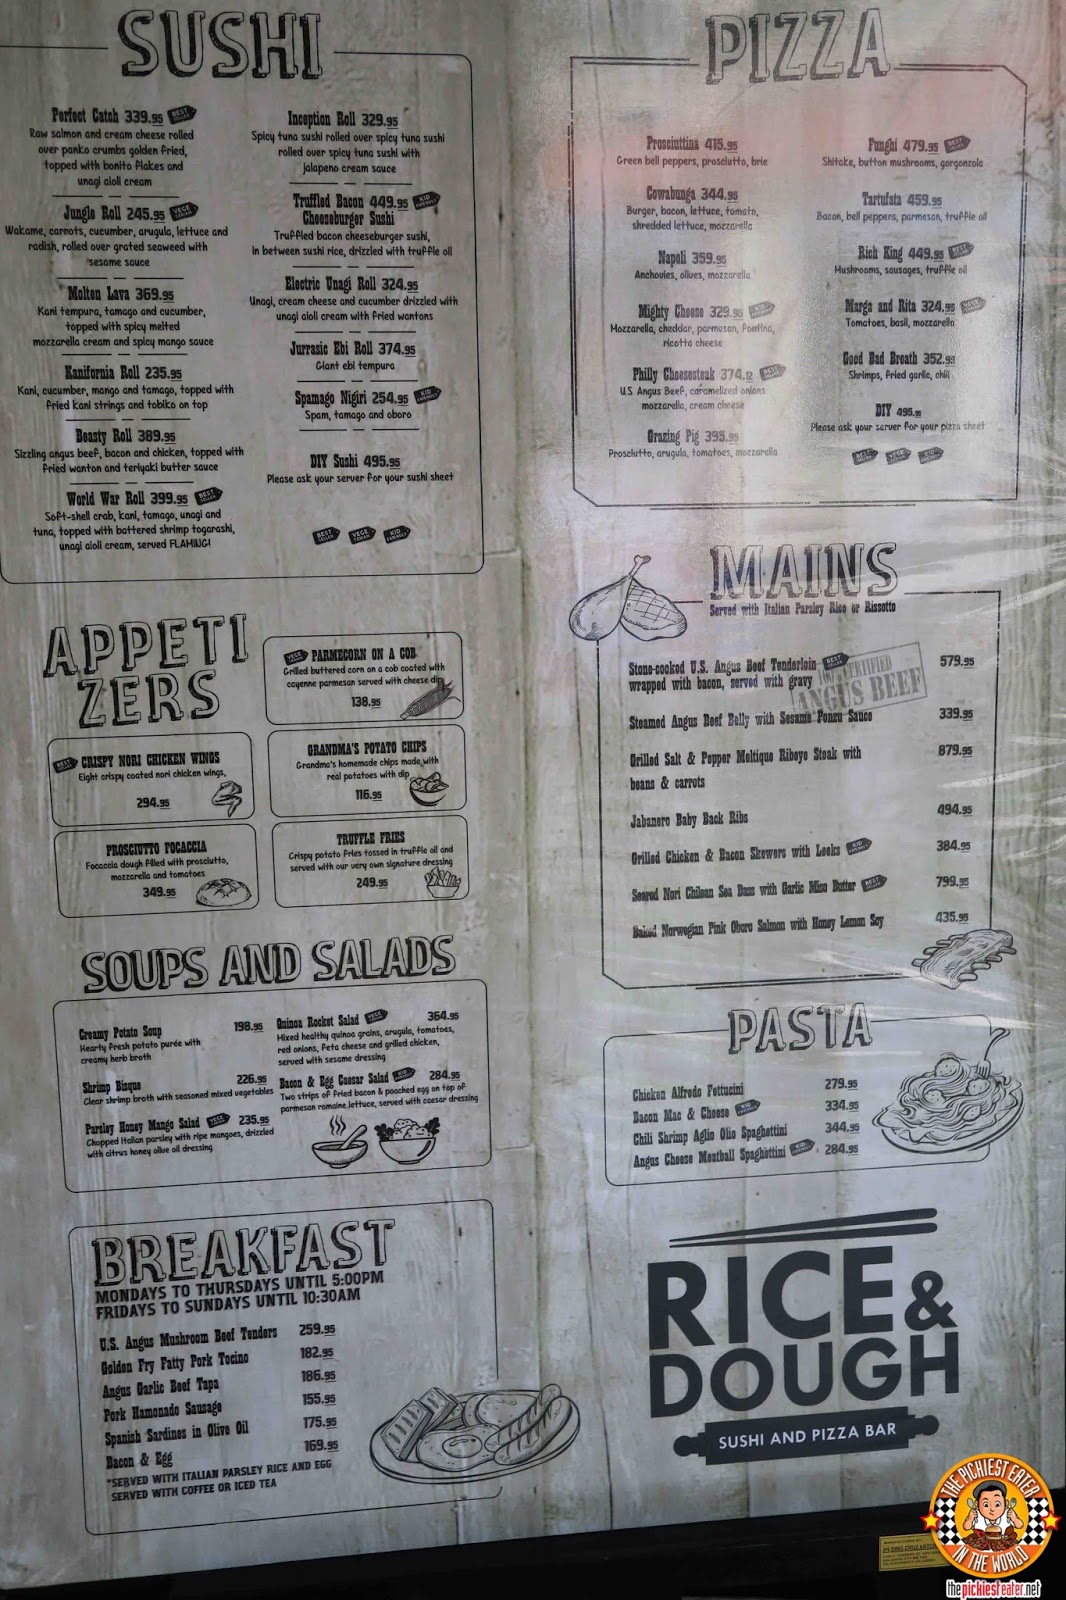 SUSHI
Perfect Catch 339.95 BEST SELLER
Raw salmon and cream cheese rolled
over panko crumbs golden fried,
topped with bonito flakes and
unagi aioli cream
Jungle Roll 245.95 VEGETARIAN
Wakame, carrots, cucumber, arugula, lettuce and
radish, rolled over grated seaweed with
sesame sauce
Molten Lava 369.95
Kani tempura, tamago and cucumber,
topped with spicy melted
mozzarella cream and spicy mango sauce
Kanifornia Roll 235.95
Kani, cucumber, mango and tamago, topped with
fried kani strings and tobiko on top
Beasty Roll 389.95
Sizzling angus beef, bacon and chicken, topped with
fried wanton and teriyaki butter sauce
World War Roll 399.95 BEST SELLER
Soft-shell crab, kani, tamago, unagi and
tuna, topped with battered shrimp togarashi,
unagi aioli cream, served FLAMING!
Inception Roll 329.95
Spicy tuna sushi rolled over spicy tuna sushi
rolled over spicy tuna sushi with
jalapeno cream sauce
Truffled Bacon 449.95 KID FRIENDLY
Cheeseburger Sushi
Truffled bacon cheeseburger sushi,
in between sushi rice, drizzled with truffle oil
Electric Unagi Roll 324.95
Unagi, cream cheese and cucumber drizzled with
unagi aioli cream with fried wantons
Jurrasic Ebi Roll 374.95
Giant ebi tempura
Spamago Nigiri 254.95 KID FRIENDLY
Spam, tamago and oboro
DIY Sushi 495.95
Please ask your server for your sushi sheet
BEST SELLER VEGETARIAN KID FRIENDLY
PIZZA
Prosciuttina 415.95
Green bell peppers, prosciutto, brie
Cowabunga 344.95
Burger, bacon, lettuce, tomato,
shredded lettuce, mozzarella
Napoli 359.95
Anchovies, olives, mozzarella
Mighty Cheese 329.95 KID FRIENDLY
Mozzarella, cheddar, parmesan, fontina,
ricotta cheese
Philly Cheesesteak 374.12 BEST SELLER
U.S. Angus Beef, caramelized onions
mozzarella, cream cheese
Grazing Pig 395.95
Prosciutto, arugula, tomatoes, mozzarella
Funghi 479.95 BEST SELLER
Shitake, button mushrooms, gorgonzola
Tartufata 459.95
Bacon, bell peppers, parmesan, truffle oil
Rich King 449.95 BEST SELLER
Mushrooms, sausages, truffle oil
Marga and Rita 324.95 VEGETARIAN
Tomatoes, basil, mozzarella
Good Bad Breath 352.95
Shrimps, fried garlic, chili
DIY 495.95
Please ask your server for your pizza sheet
BEST SELLER VEGETARIAN KID FRIENDLY
APPETI
ZERS
VEGETARIAN PARMECORN ON A COB
Grilled buttered corn on a cob coated with
cayenne parmesan served with cheese dip
138.95
BEST SELLER CRISPY NORI CHICKEN WINGS
Eight crispy coated nori chicken wings,
294.95
GRANDMA'S POTATO CHIPS
Grandma's homemade chips made with
real potatoes with dip
116.95
PROSCIUTTO FOCACCIA
Focaccia dough filled with prosciutto,
mozzarella and tomatoes
349.95
TRUFFLE FRIES
Crispy potato fries tossed in truffle oil and
served with our very own signature dressing
249.95
MAINS
Served with Italian Parsley Rice or Rissotto
Stone-cooked U.S. Angus Beef Tenderloin BEST SELLER 579.95
wrapped with bacon, served with gravy
100% CERTIFIED
ANGUS BEEF
Steamed Angus Beef Belly with Sesame Ponzu Sauce 339.95
Grilled Salt & Pepper Meltique Ribeye Steak with 879.95
beans & carrots
Jabanero Baby Back Ribs 494.95
Grilled Chicken & Bacon Skewers with Leeks KID FRIENDLY 384.95
Seared Nori Chilean Sea Bass with Garlic Miso Butter BEST SELLER 799.95
Baked Norwegian Pink Oboro Salmon with Honey Lemon Soy 435.95
SOUPS AND SALADS
Creamy Potato Soup 198.95
Hearty fresh potato purée with
creamy herb broth
Shrimp Bisque 226.95
Clear shrimp broth with seasoned mixed vegetables
Parsley Honey Mango Salad VEGETARIAN 235.95
Chopped Italian parsley with ripe mangoes, drizzled
with citrus honey olive oil dressing
Quinoa Rocket Salad VEGETARIAN 364.95
Mixed healthy quinoa grains, arugula, tomatoes,
red onions, feta cheese and grilled chicken,
served with sesame dressing
Bacon & Egg Caesar Salad KID FRIENDLY 284.95
Two strips of fried bacon & poached egg on top of
parmesan romaine lettuce, served with caesar dressing
PASTA
Chicken Alfredo Fettucini 279.95
Bacon Mac & Cheese KID FRIENDLY 334.95
Chili Shrimp Aglio Olio Spaghettini 344.95
Angus Cheese Meatball Spaghettini KID FRIENDLY 284.95
BREAKFAST
MONDAYS TO THURSDAYS UNTIL 5:00PM
FRIDAYS TO SUNDAYS UNTIL 10:30AM
U.S. Angus Mushroom Beef Tenders 259.95
Golden Fry Fatty Pork Tocino 182.95
Angus Garlic Beef Tapa 186.95
Pork Hamonado Sausage 155.95
Spanish Sardines in Olive Oil 175.95
Bacon & Egg 169.95
*SERVED WITH ITALIAN PARSLEY RICE AND EGG
SERVED WITH COFFEE OR ICED TEA
RICE &
DOUGH
SUSHI AND PIZZA BAR
THE PICKIEST EATER
IN THE WORLD
thepickiesteater.net